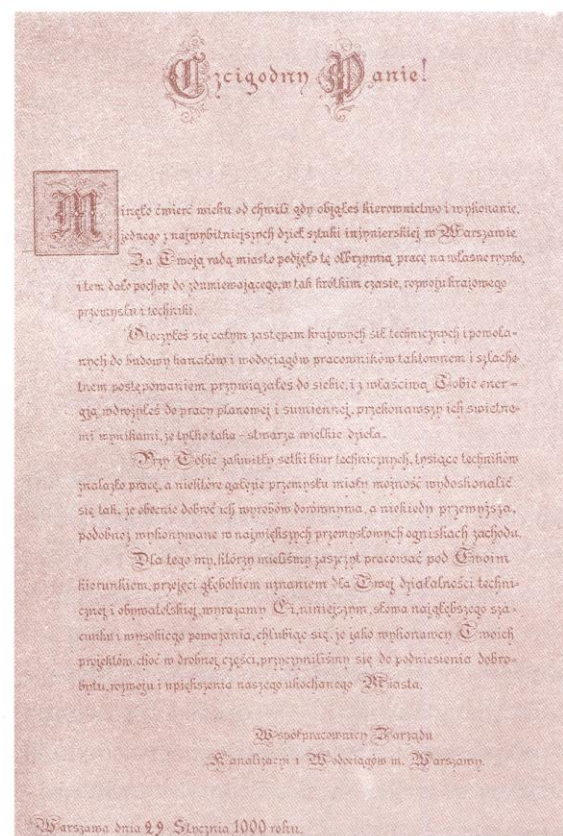 Czcigodny Panie!
Minęło ćwierć wieku od chwili gdy objąłeś kierownictwo i wykonanie,
jednego z najwybitniejszych dzieł sztuki inżynierskiej w Warszawie.
Za Twoją radą miasto podjęło tę olbrzymią pracę na własne ryzyko,
i tem dało pochop do zdumiewającego, w tak krótkim czasie, rozwoju krajowego
przemysłu i techniki.
Otoczyłeś się całym zastępem krajowych sił technicznych i powoła-
nych do budowy kanałów i wodociągów pracowników taktownem i szlache-
tnem postępowaniem przywiązałeś do siebie, i z właściwą Tobie ener-
gją wdrożyłeś do pracy planowej i sumiennej, przekonawszy ich świetne-
mi wynikami, że tylko taka - stwarza wielkie dzieła.
Przy Tobie zakwitły setki biur technicznych, tysiące techników
znalazło pracę, a niektóre gałęzie przemysłu miały możność wydoskonalić
się tak, że obecnie dobroć ich wyrobów dorównywa, a niekiedy przewyższa,
podobnej wykonywane w największych przemysłowych ogniskach zachodu.
Dla tego my, którzy mieliśmy zaszczyt pracować pod Twoim
kierunkiem, przejęci głębokiem uznaniem dla Twej działalności techni-
cznej i obywatelskiej, wyrażamy Ci, niniejszym, słowa najgłębszego sza-
cunku i wysokiego poważania, chlubiąc się, że jako wykonawcy Twoich
projektów, choć w drobnej części, przyczyniliśmy się do podniesienia dobro-
bytu, rozwoju i upiększenia naszego ukochanego Miasta.
Współpracownicy Zarządu
Kanalizacyi i Wodociągów m. Warszawy.
Warszawa dnia 29 Stycznia 1000 roku.